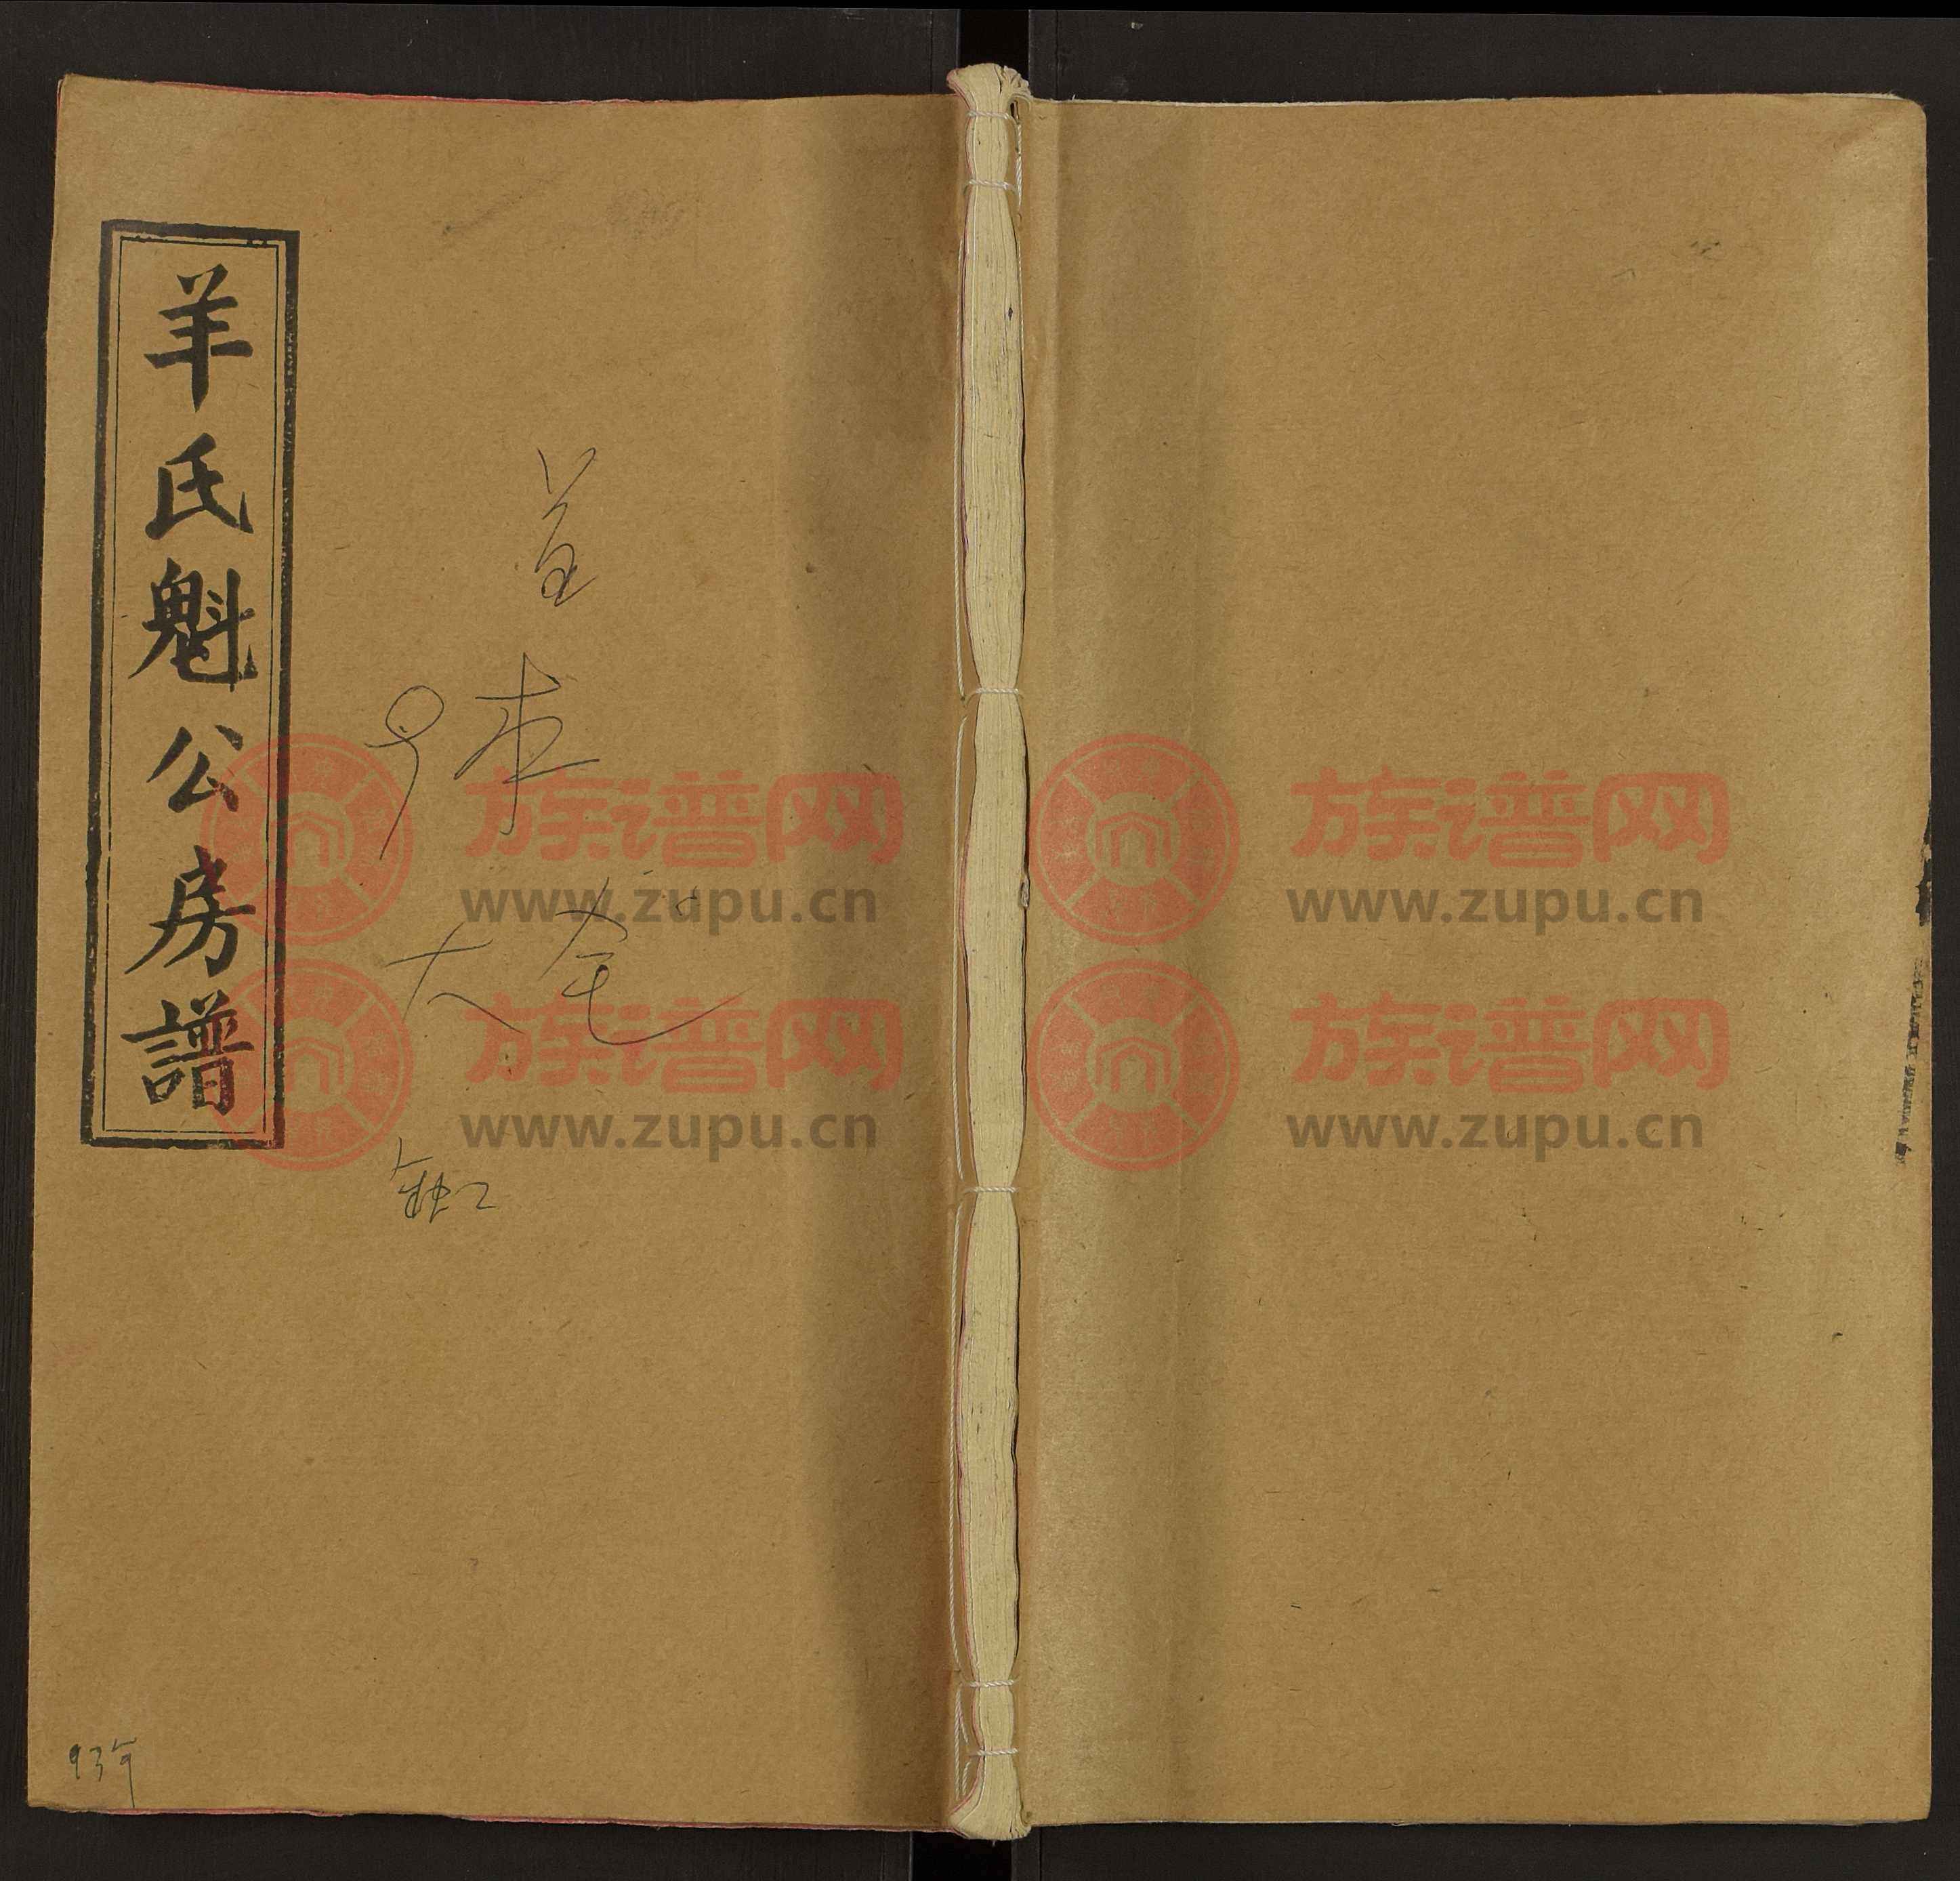 羊氏魁公房譜
首
本
大
93年
族谱网
www.zupu.cn
族谱网
www.zupu.cn
族谱网
www.zupu.cn
族谱网
www.zupu.cn